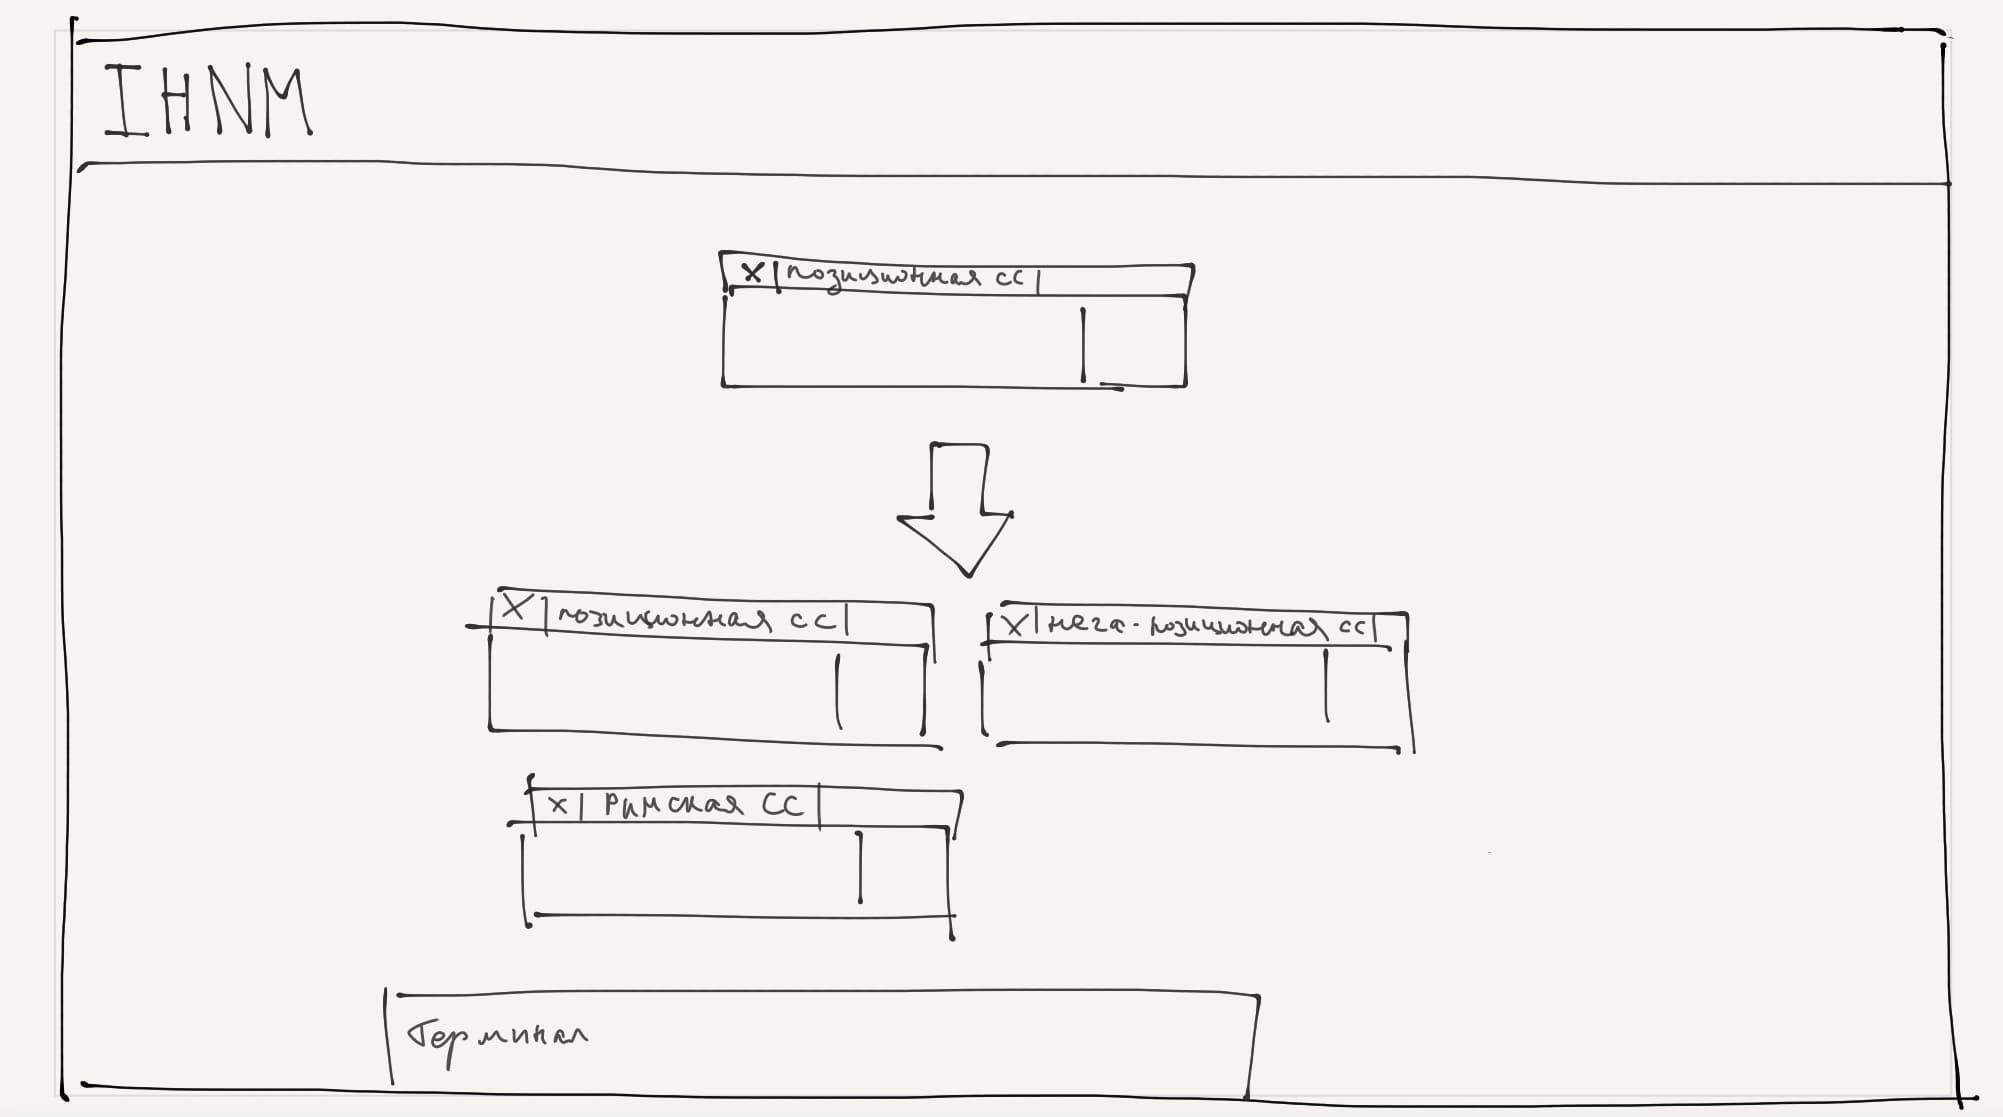 IHNM
X позиционная сс
X позиционная сс
X нега-позиционная сс
X Римская СС
Терминал